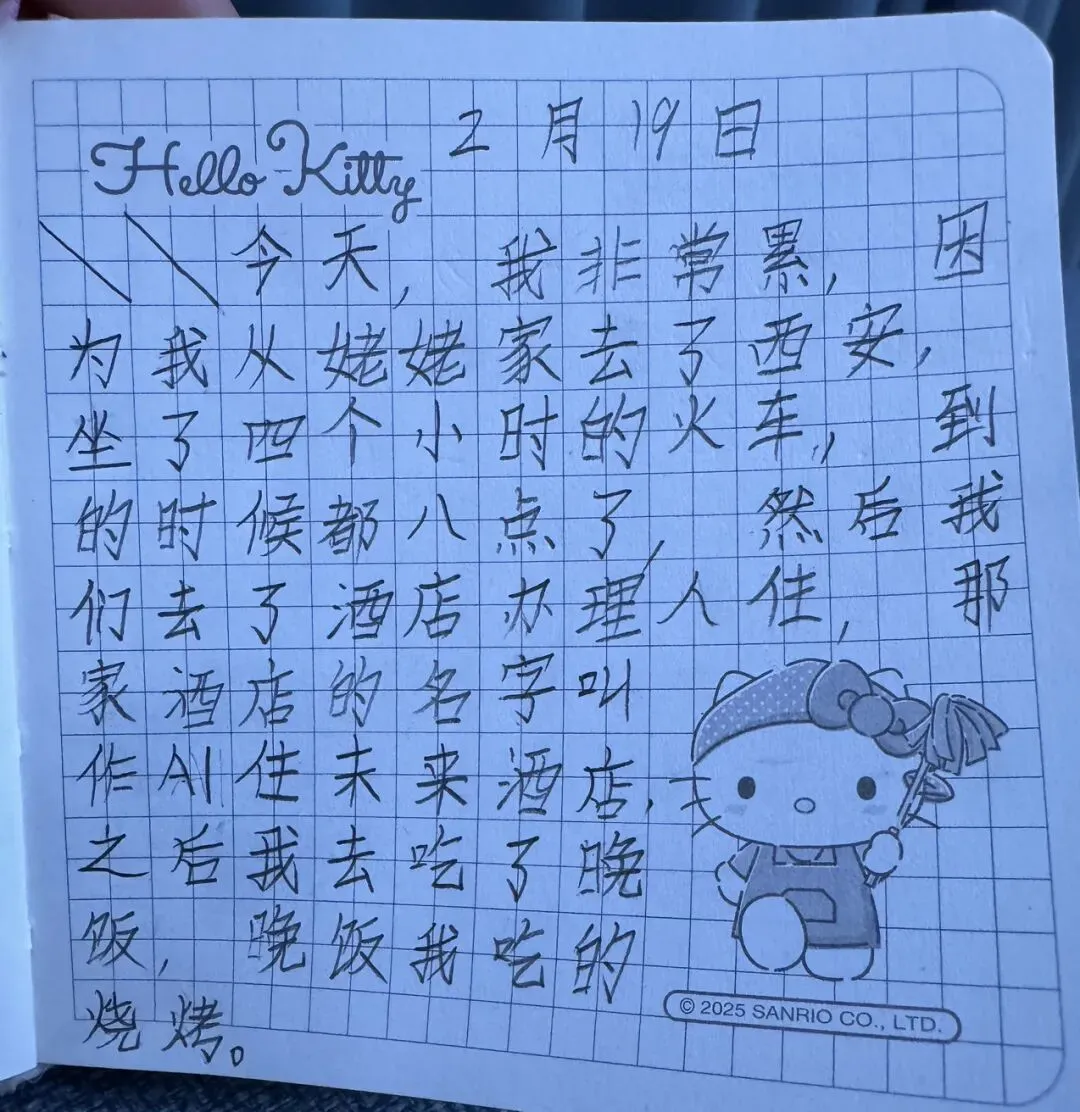 2月19日
Hello Kitty
今天,我非常累,因
为我从姥姥家去了西安,
坐了四个小时的火车,到
的时候都八点了,然后我
们去了酒店办理人住,那
家酒店的名字叫
作AI住未来酒店,
之后我去吃了晚
饭,晚饭我吃的
烧烤。
© 2025 SANRIO CO., LTD.